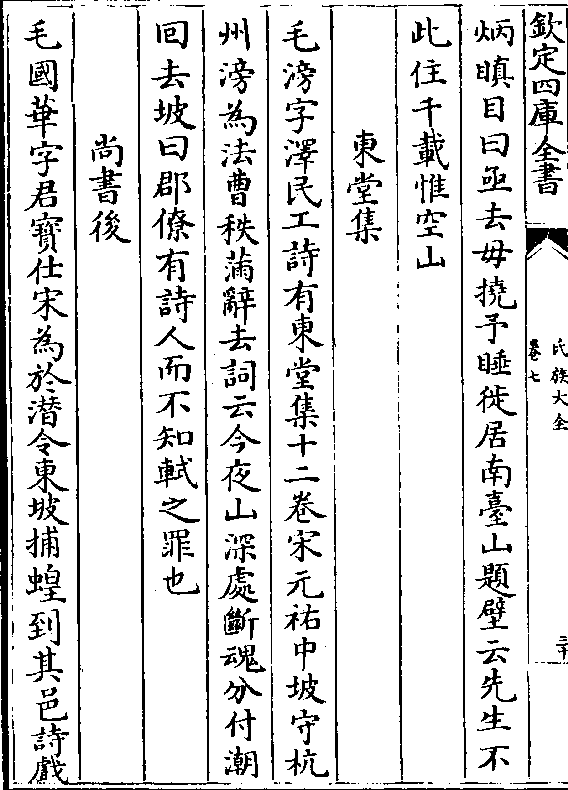 欽定四庫全書
氏族大全
卷七
三十
炳瞋目曰亟去毋撓予睡徙居南臺山題壁云先生不
此住千載惟空山
東堂集
毛滂字澤民工詩有東堂集十二卷宋元祐中坡守杭
州滂為法曹秩滿辭去詞云今夜山深處斷魂分付潮
回去坡曰郡僚有詩人而不知軾之罪也
尚書後
毛國華字君寶仕宋為於潛令東坡捕蝗到其邑詩戲